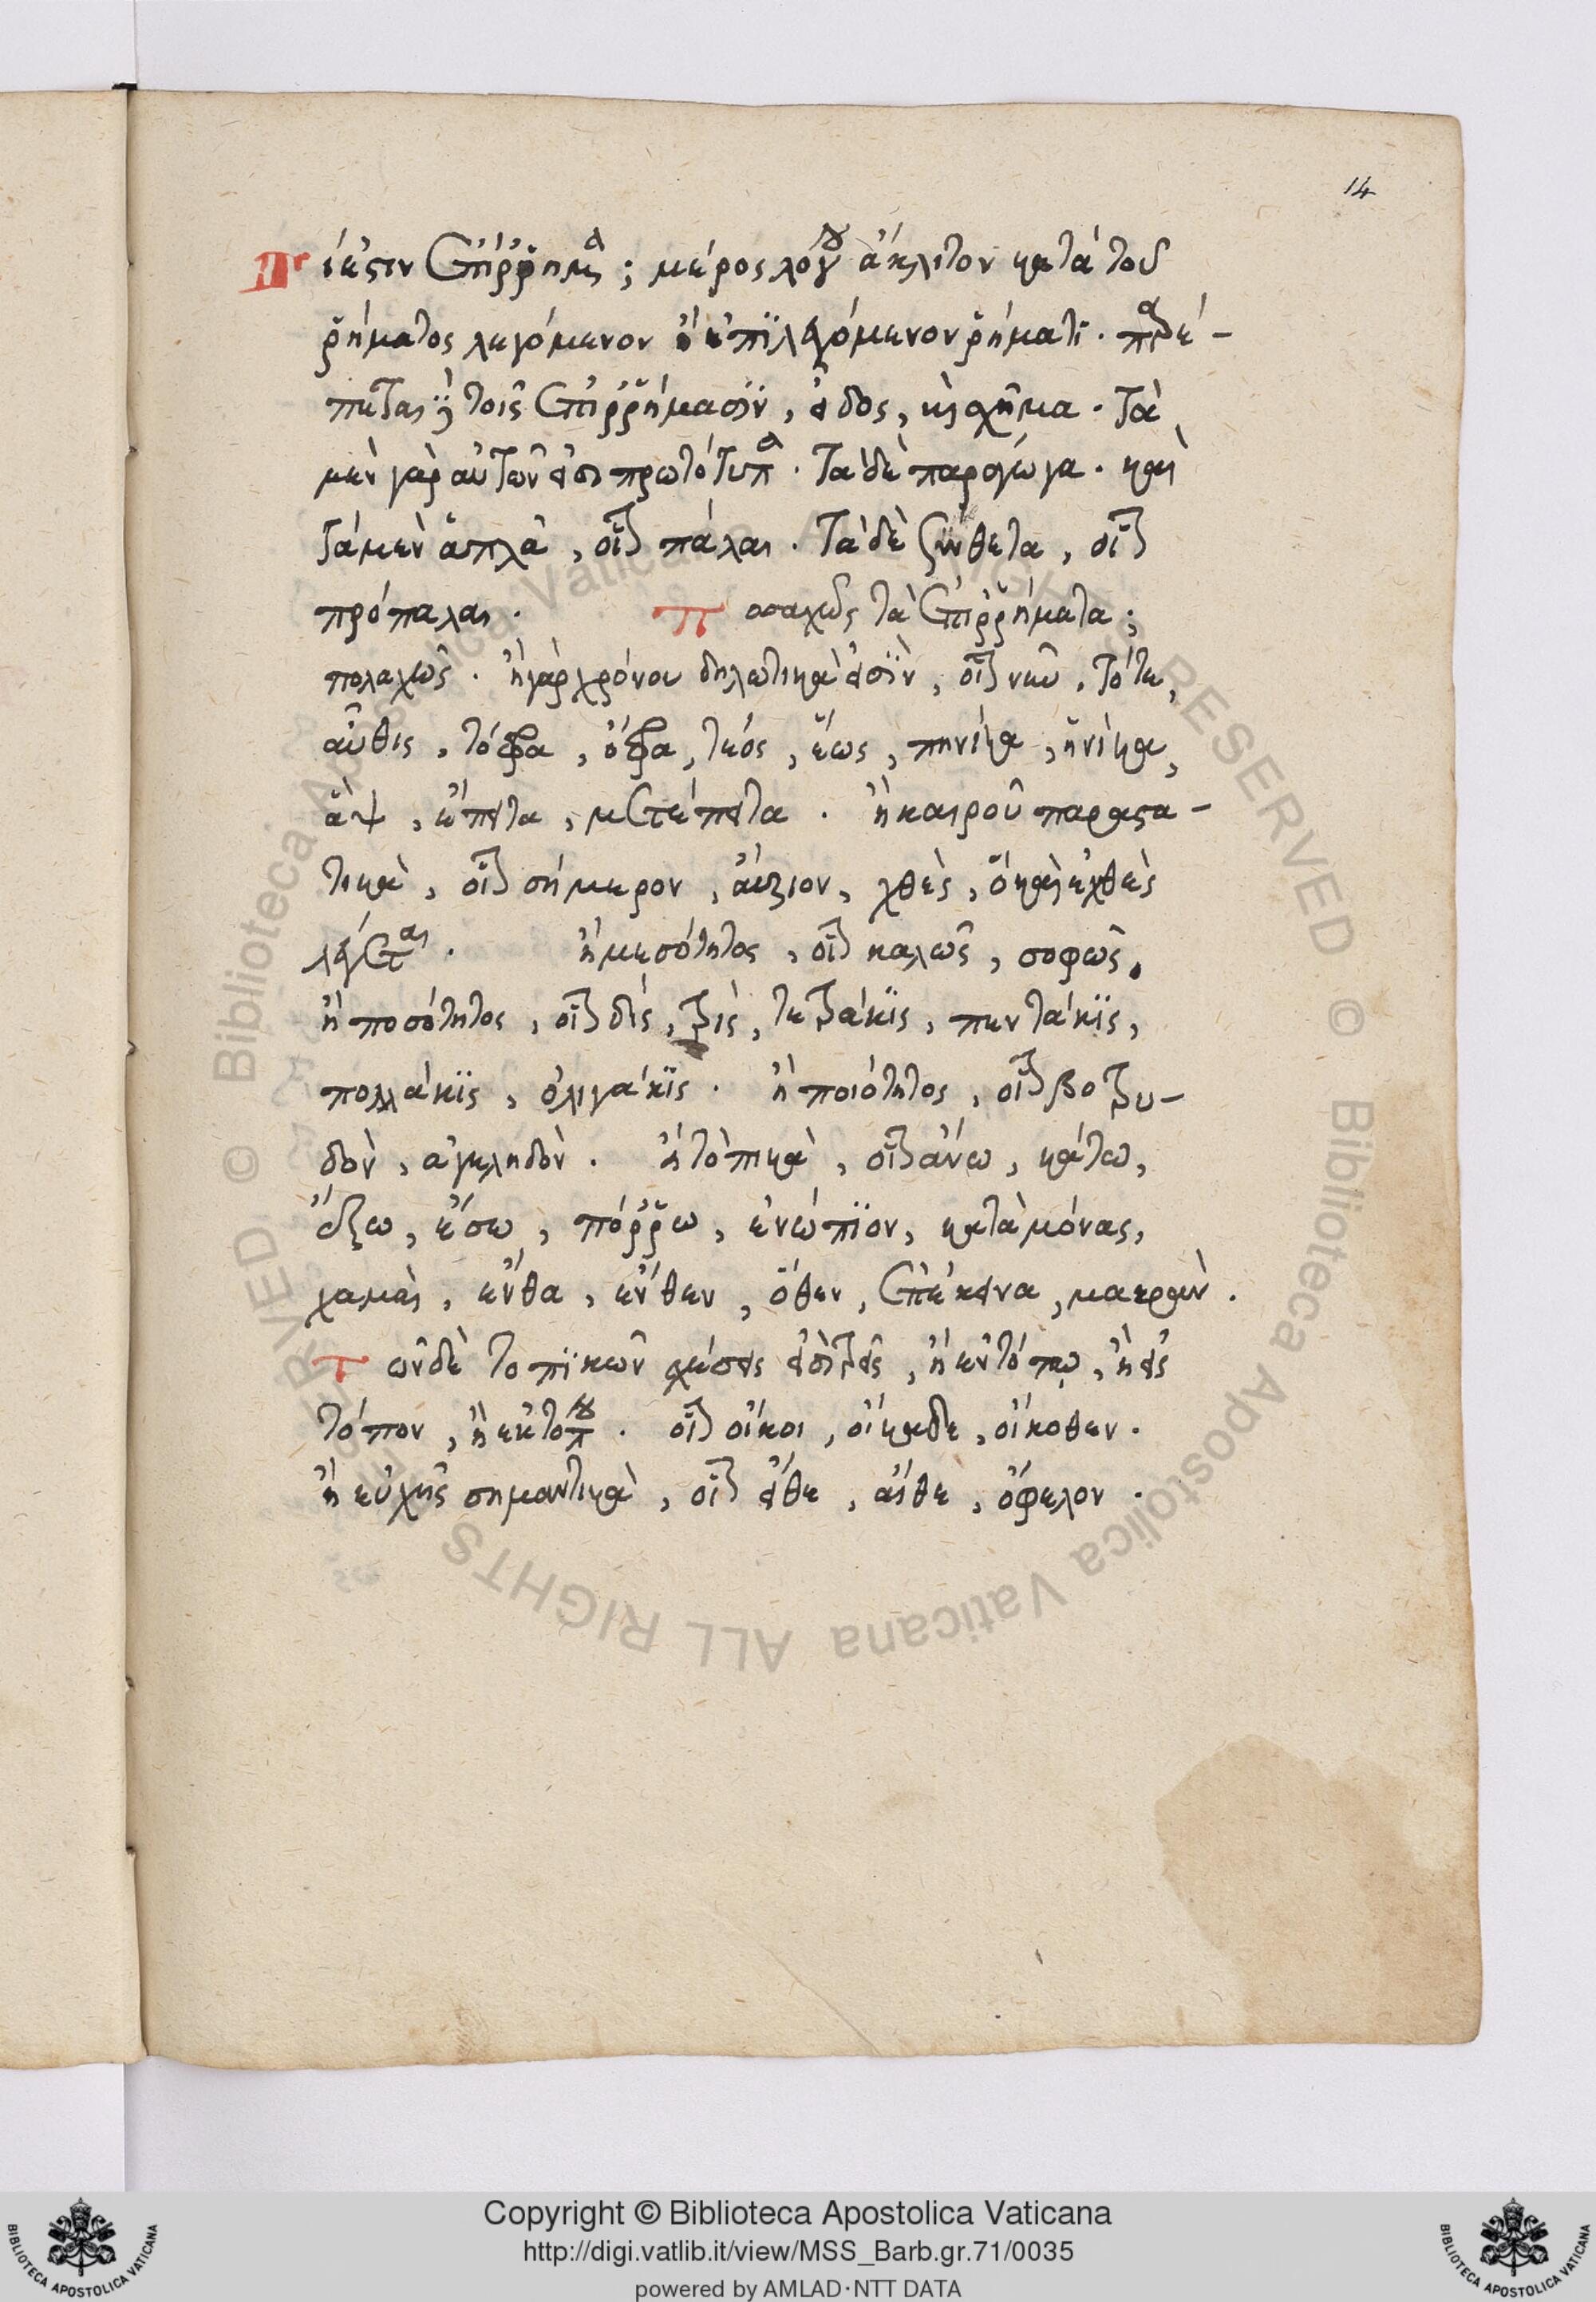 14
Τί ἐστιν ἐπίρρημα; μέρος λόγου ἄκλιτον κατὰ τοῦ
ῥήματος λεγόμενον ἢ ἐπϊλεγόμενον ῥήματϊ. παρέ-
πεται τοῖς ἐπιρρήμασϊν, εἶδος, καὶ σχῆμα. τὰ
μὲν γὰρ αὐτῶν εἰσι πρωτότυπα. τὰ δὲ παραγώγα. καὶ
τὰ μὲν ἁπλᾶ, οἷον πάλαι. τὰ δὲ σύνθετα, οἷον
πρόπαλαι. Ποσαχῶς τὰ ἐπιρρήματα;
πολαχῶς. ἢ γὰρ χρόνου δηλωτικά εἰσϊν, οἷον νῦν, τότε,
αὖθις, τόφρα, ὄφρα, τέος, ἕως, πηνίκα, ἡνίκα,
ἂψ, ἔπειτα, μετέπειτα. ἢ καιροῦ παραστα-
τικὰ, οἷον σήμερον, αὔριον, χθὲς, ὃ καὶ ἐχθὲς
λέγεται. ἢ μεσότητος, οἷον καλῶς, σοφῶς.
ἢ ποσότητος, οἷον δὶς, τρὶς, τετράκϊς, πεντάκϊς,
πολλάκϊς, ὀλιγάκϊς. ἢ ποιότητος, οἷον βοτρυ-
δὸν, ἀγεληδὸν. ἢ τὸπικὰ, οἷον ἄνω, κάτω,
ἔξω, ἔσω, πόρρω, ἐνώπϊον, καταμόνας,
χαμαὶ, ἔνθα, ἔνθεν, ὅθεν, ἐπέκεινα, μακρὰν.
Τῶν δὲ τοπϊκῶν σχέσεις εἰσὶ τρεῖς, ἢ ἐν τόπῳ, ἢ εἰς
τόπον, ἢ ἐκ τόπου. οἷον οἴκοι, οἴκαδε, οἴκοθεν.
ἢ εὐχῆς σημαντικὰ, οἷον εἴθε, αἴθε, ὄφελον.
Copyright © Biblioteca Apostolica Vaticana
http://digi.vatlib.it/view/MSS_Barb.gr.71/0035
powered by AMLAD·NTT DATA